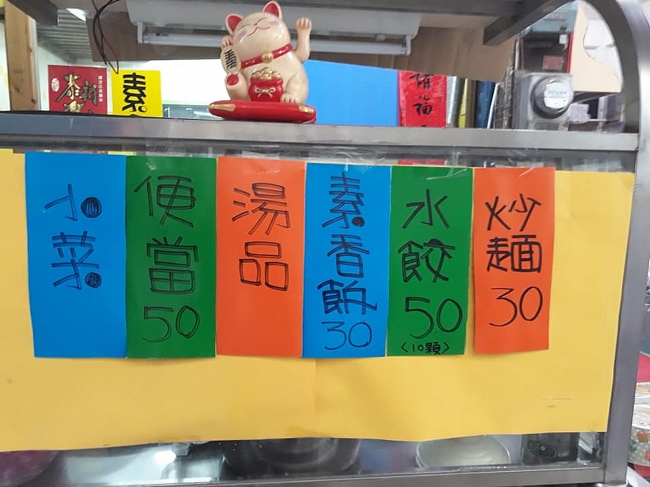 素
小菜
便當
50
湯品
素香飯
30
水餃
50
<10顆>
炒麵
30